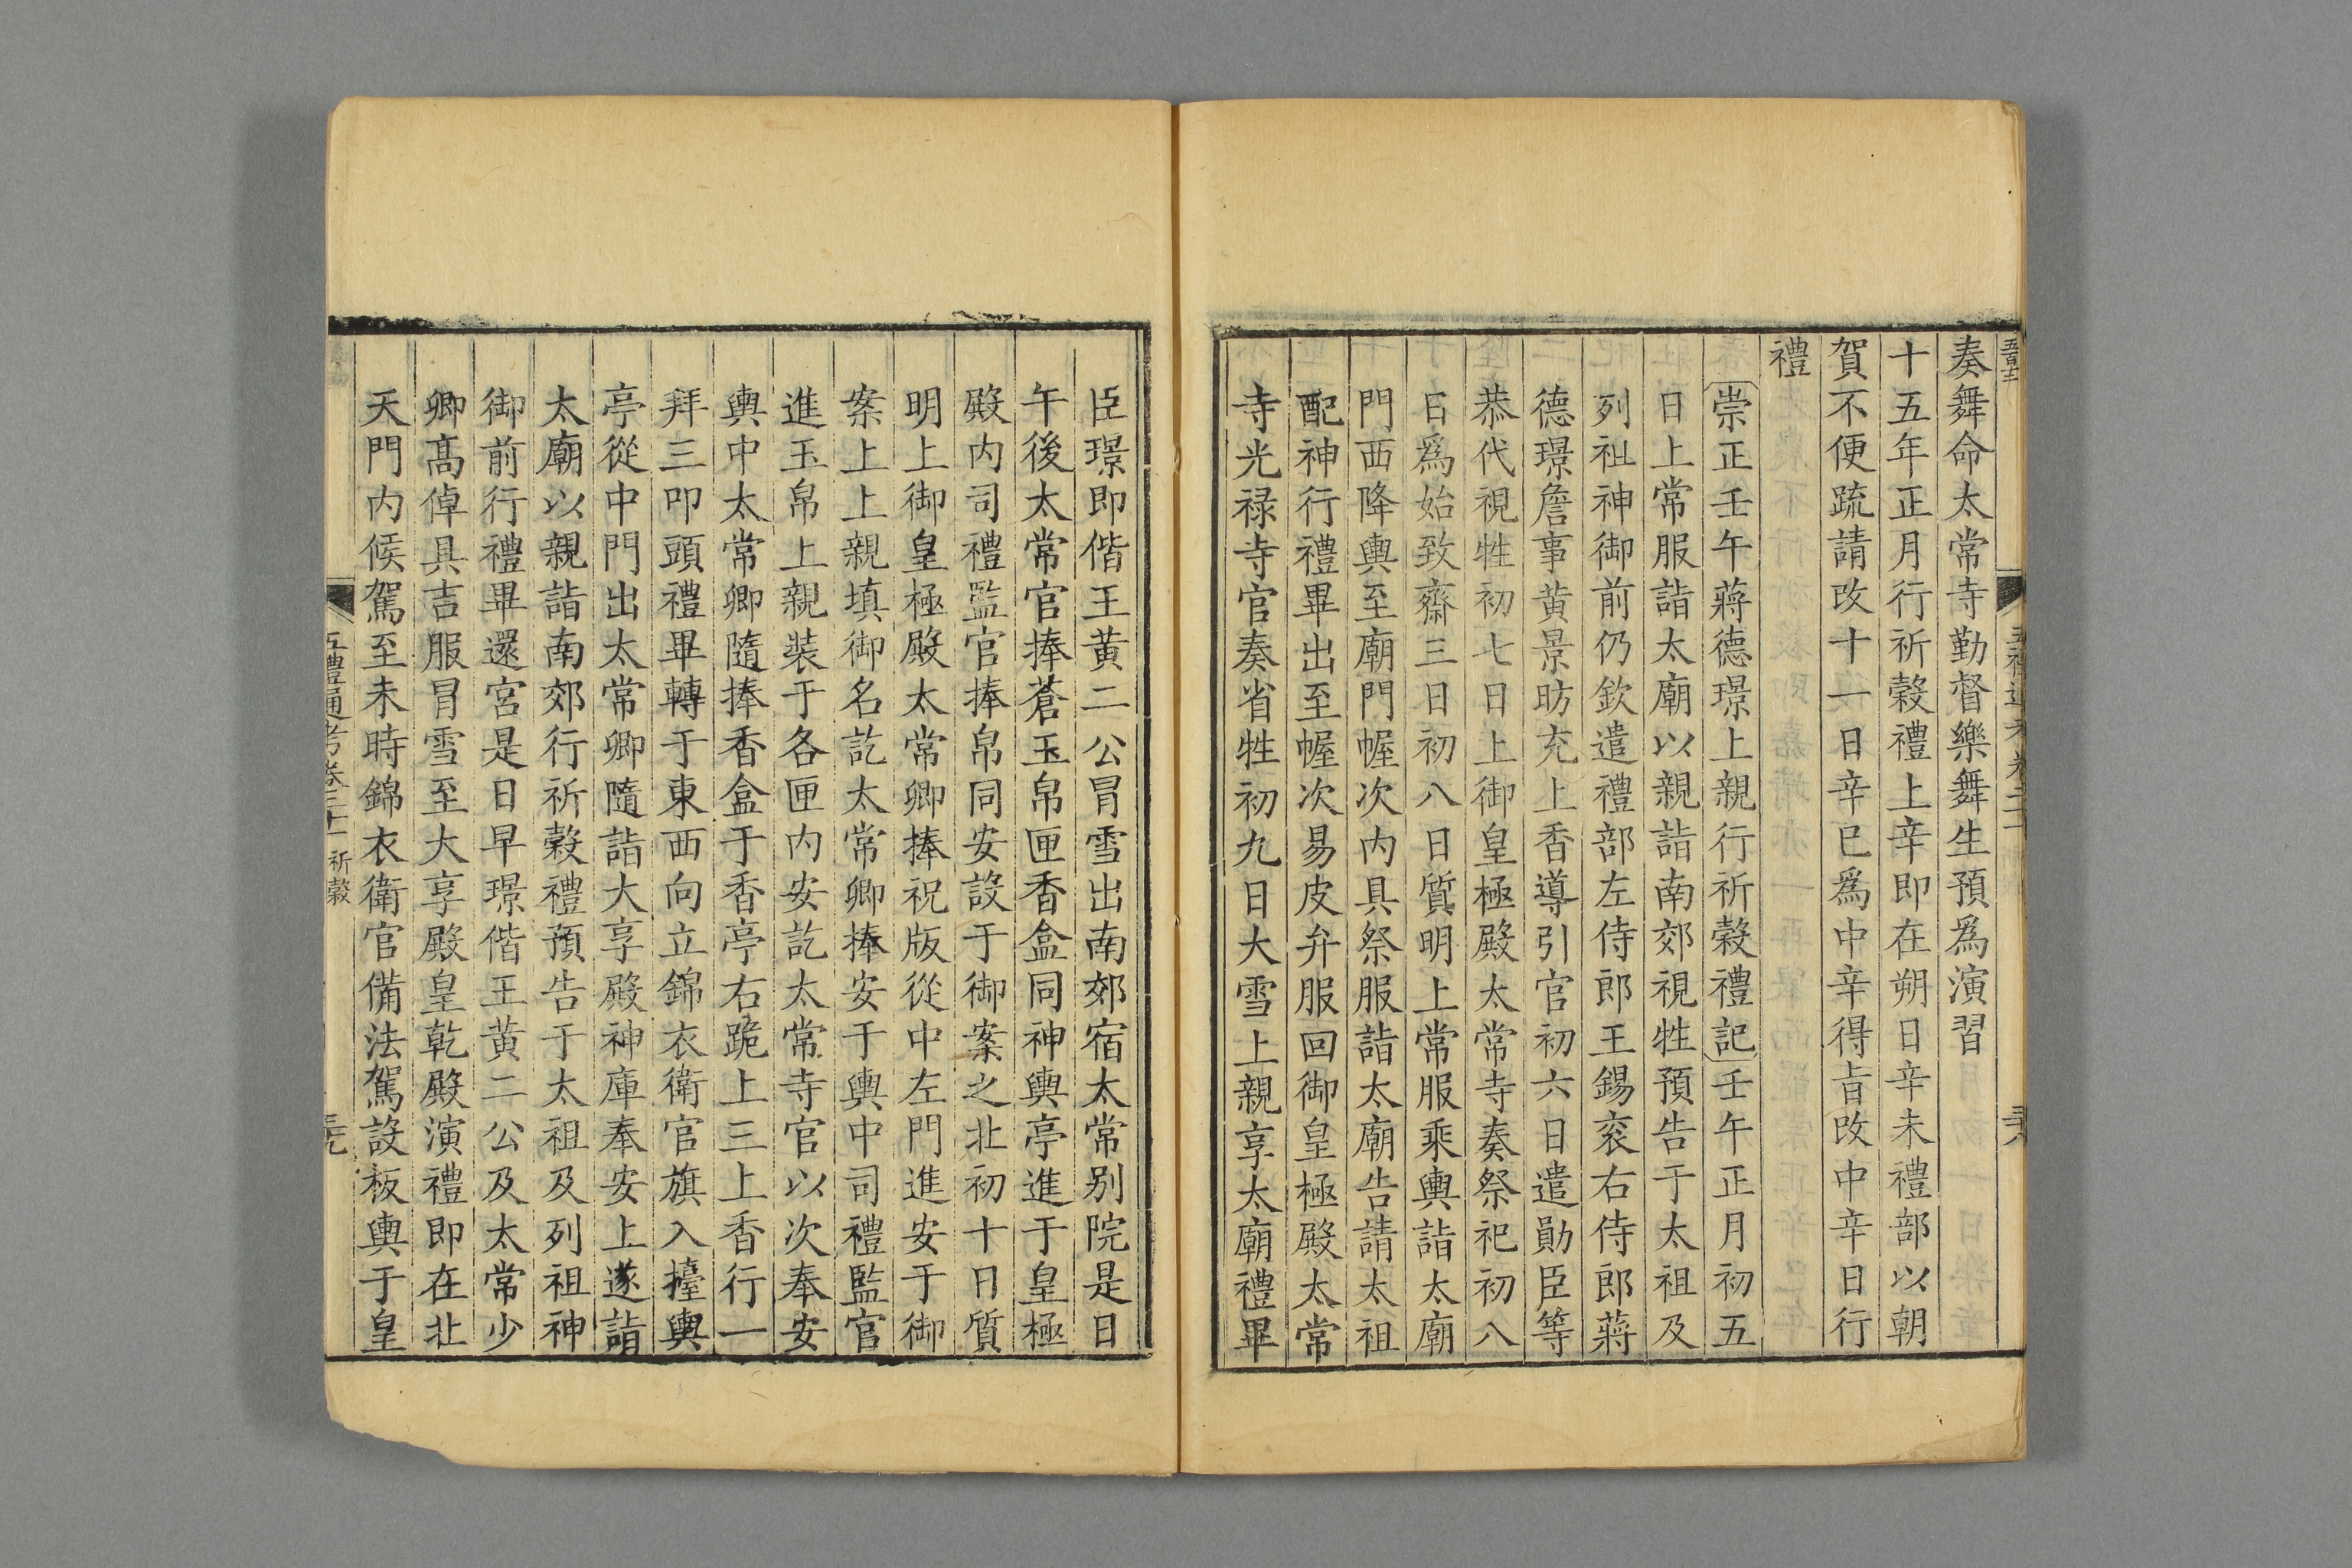 奏舞命太常寺勤督樂舞生預爲演習
十五年正月行祈穀禮上辛即在朔日辛未禮部以朝
賀不便疏請改十一日辛巳爲中辛得旨改中辛日行
禮
崇正壬午蔣德璟上親行祈穀禮記壬午正月初五
日上常服詣太廟以親詣南郊視牲預告于太祖及
列祖神御前仍欽遣禮部左侍郎王錫衮右侍郎蔣
德璟詹事黄景昉充上香導引官初六日遣勛臣等
恭代視牲初七日上御皇極殿太常寺奏祭祀初八
日爲始致齋三日初八日質明上常服乘輿詣太廟
門西降輿至廟門幄次内具祭服詣太廟告請太祖
配神行禮畢出至幄次易皮弁服回御皇極殿太常
寺光禄寺官奏省牲初九日大雪上親享太廟禮畢
臣璟即偕王黄二公冒雪出南郊宿太常别院是日
午後太常官捧蒼玉帛匣香盒同神輿亭進于皇極
殿内司禮監官捧帛同安設于御案之北初十日質
明上御皇極殿太常卿捧祝版從中左門進安于御
案上上親填御名訖太常卿捧安于輿中司禮監官
進玉帛上親裝于各匣内安訖太常寺官以次奉安
輿中太常卿隨捧香盒于香亭右跪上三上香行一
拜三叩頭禮畢轉于東西向立錦衣衛官旗入擡輿
亭從中門出太常卿隨詣大享殿神庫奉安上遂詣
太廟以親詣南郊行祈穀禮預告于太祖及列祖神
御前行禮畢還宮是日早璟偕王黄二公及太常少
卿髙倬具吉服冒雪至大享殿皇乾殿演禮即在北
天門内候駕至未時錦衣衛官備法駕設板輿于皇
五禮通考卷二十一 祈穀